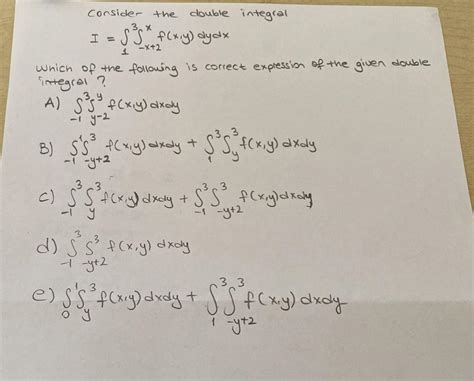 Consider the double integral
I = ∫₁³∫₋ₓ₊₂ˣ f(x,y) dydx
which of the following is correct expression of the given double
integral ?
A) ∫₋₁³∫_{y-2}^{y} f(x,y) dxdy
B) ∫₋₁¹∫_{-y+2}^{3} f(x,y) dxdy + ∫₁³∫_{y}^{3} f(x,y) dxdy
c) ∫₋₁³∫_{y}^{3} f(x,y) dxdy + ∫₋₁³∫_{-y+2}^{3} f(x,y) dxdy
d) ∫₋₁³∫_{-y+2}^{3} f(x,y) dxdy
e) ∫₀¹∫_{y}^{3} f(x,y) dxdy + ∫₁³∫_{-y+2}^{3} f(x,y) dxdy